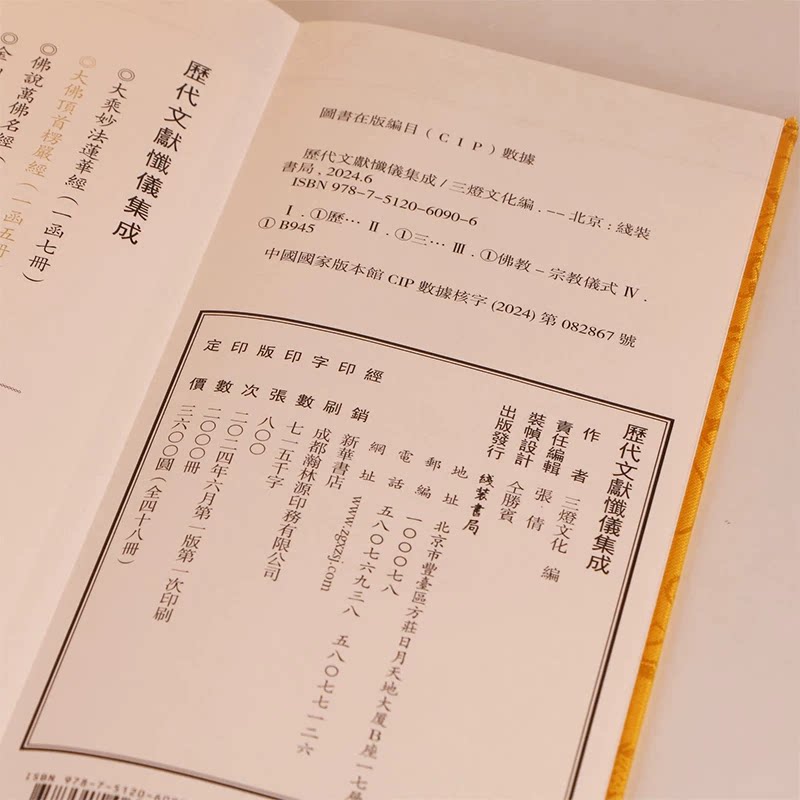 歷代文獻懺儀集成
◎大乘妙法蓮華經(一函七冊)
◎大佛頂首楞嚴經(一函五冊
◎佛說萬佛名經(
圖書在版編目(CIP)數據
歷代文獻懺儀集成/三燈文化編.--北京:綫裝
書局,2024.6
ISBN 978-7-5120-6090-6
Ⅰ.①歷… Ⅱ.①三… Ⅲ.①佛教－宗教儀式 Ⅳ.
①B945
中國國家版本館CIP數據核字(2024)第082867號
歷代文獻懺儀集成
作者 三燈文化 編
責任編輯 張倩
裝幀設計 仝勝賓
出版發行 綫裝書局
地址 北京市豐臺區方莊日月天地大廈B座一七層
郵編 一〇〇〇七八
電話 五八〇七六九三八 五八〇七七一二六
網址 www.zgxzsj.com
經銷 新華書店
印刷 成都瀚林源印務有限公司
字數 七一五千字
印張 八〇〇
版次 二〇二四年六月第一版第一次印刷
印數 二〇〇〇冊
定價 三六〇〇圓(全四十八冊)
ISBN 978-7-5120-609